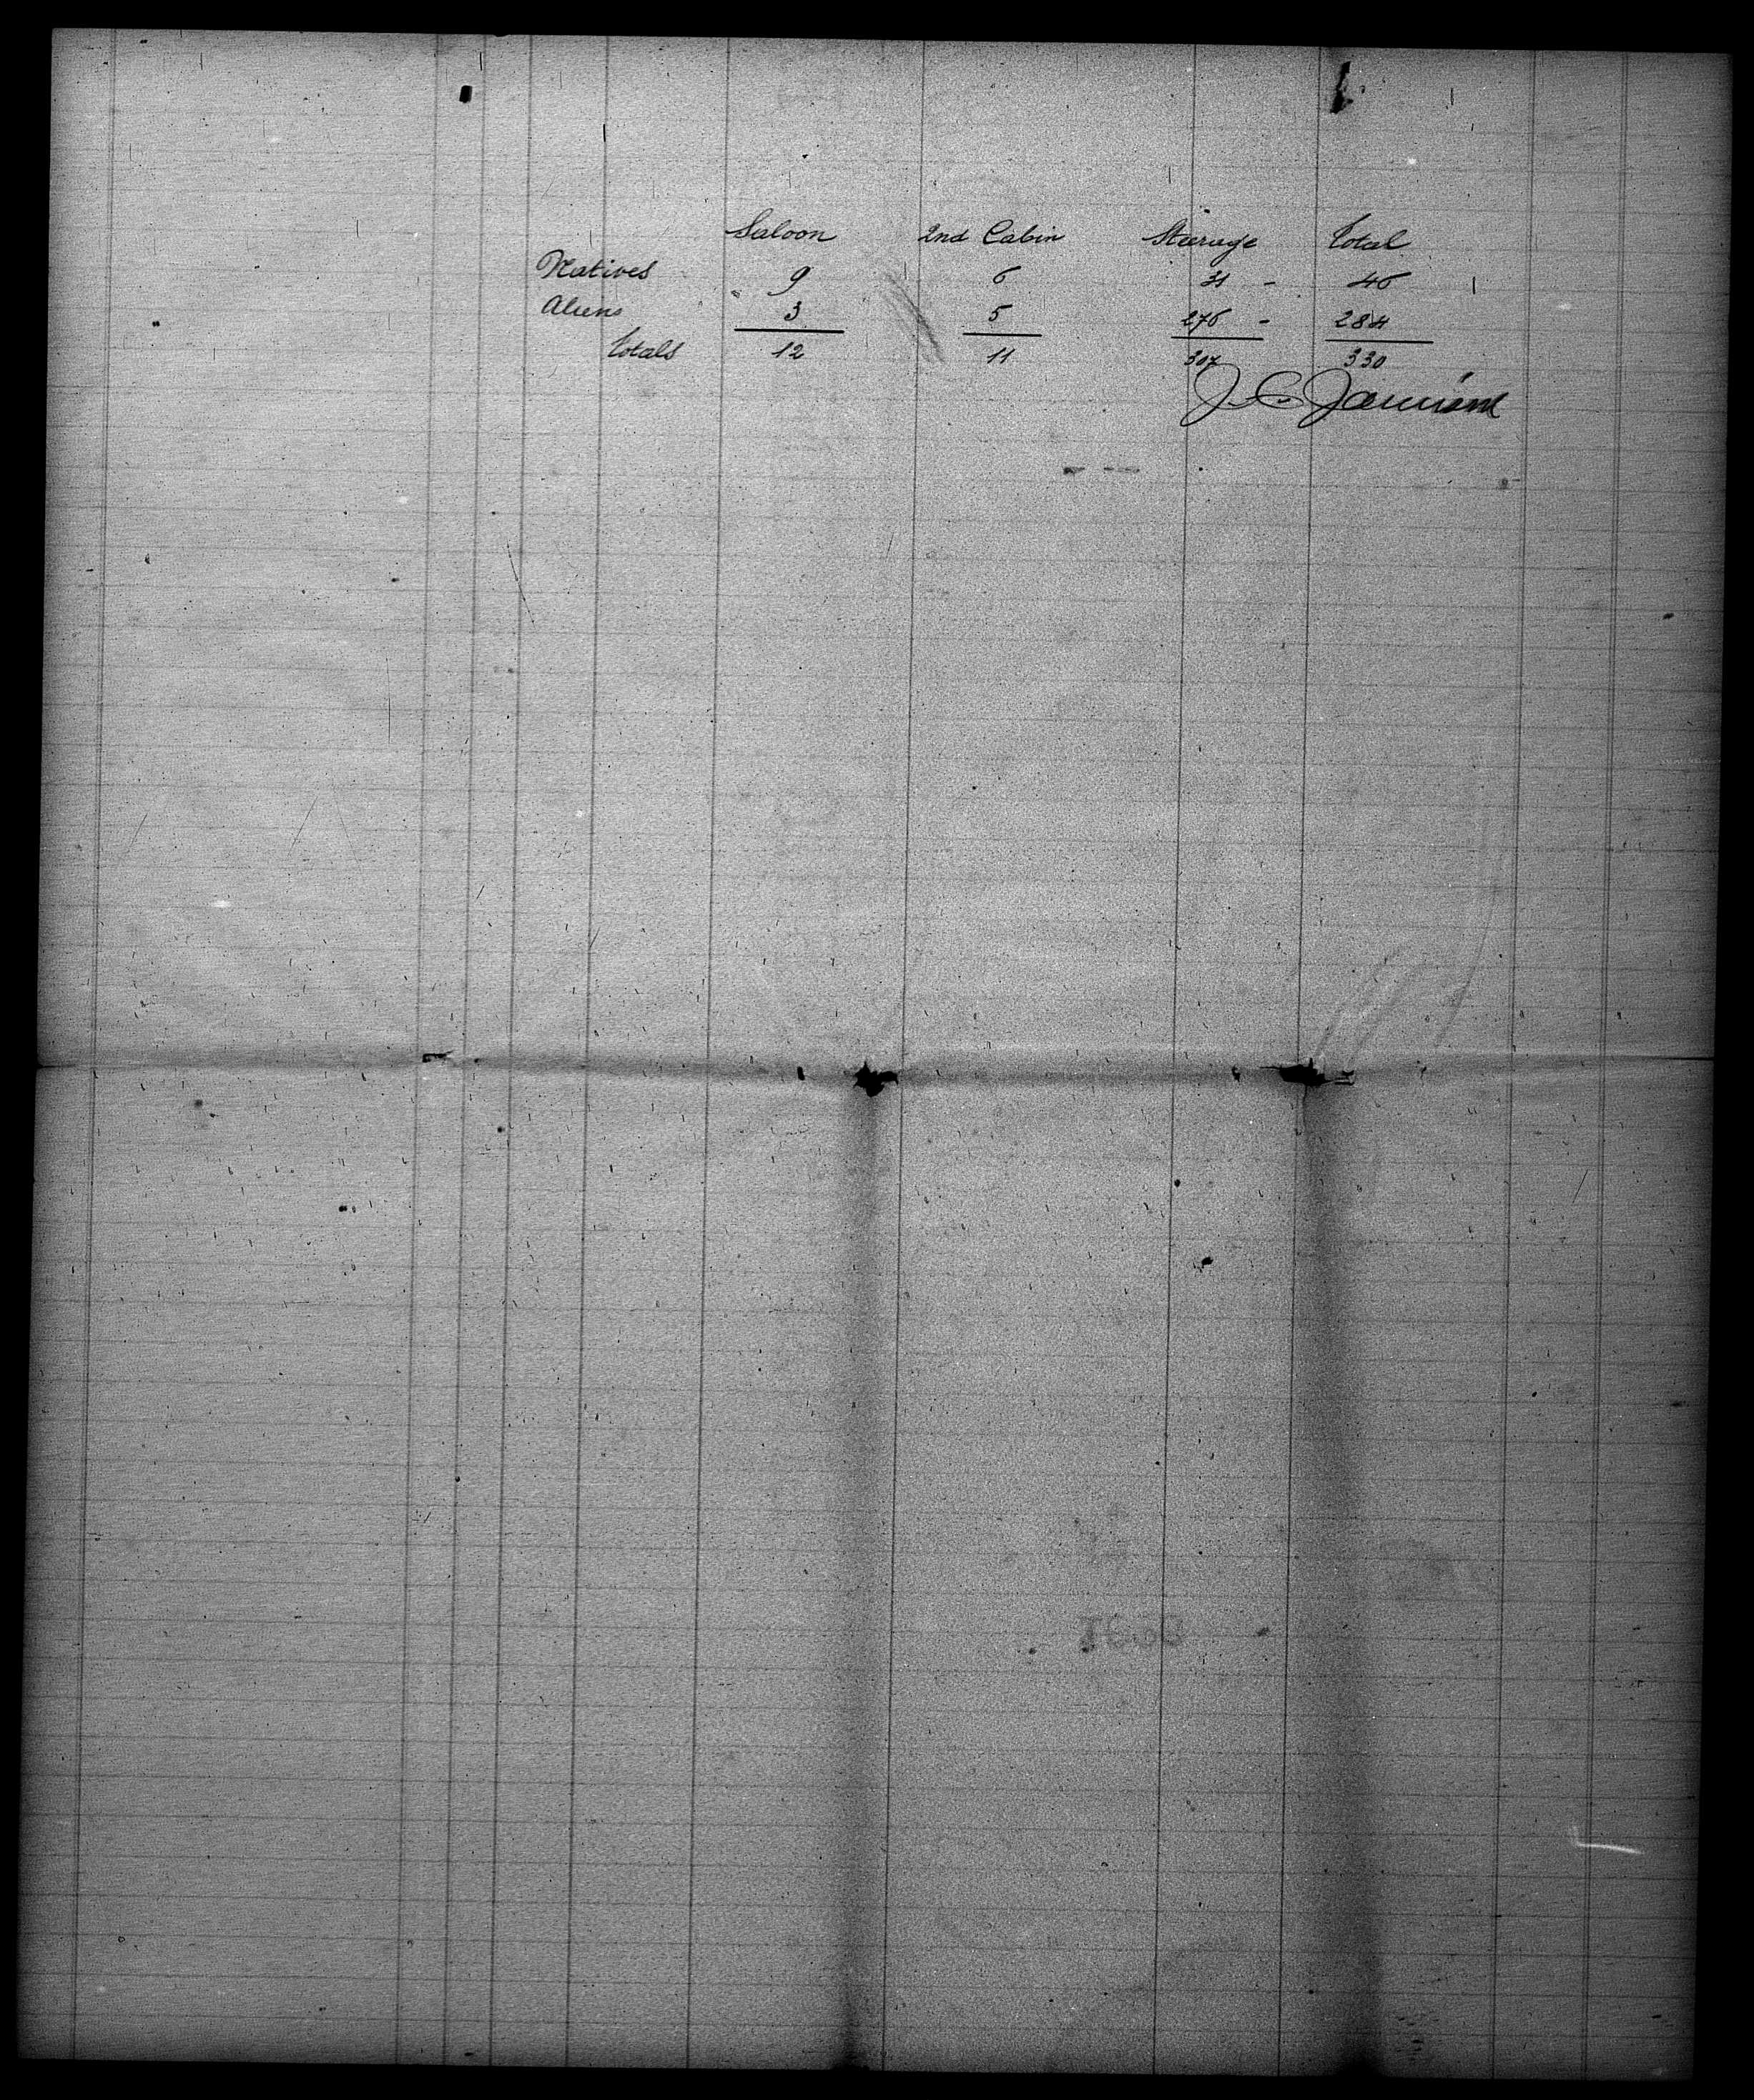 Saloon 2nd Cabin Steerage Total
Natives 9 6 31 - 46
Aliens 3 5 276 - 284
Totals 12 11 307 330
J. C.